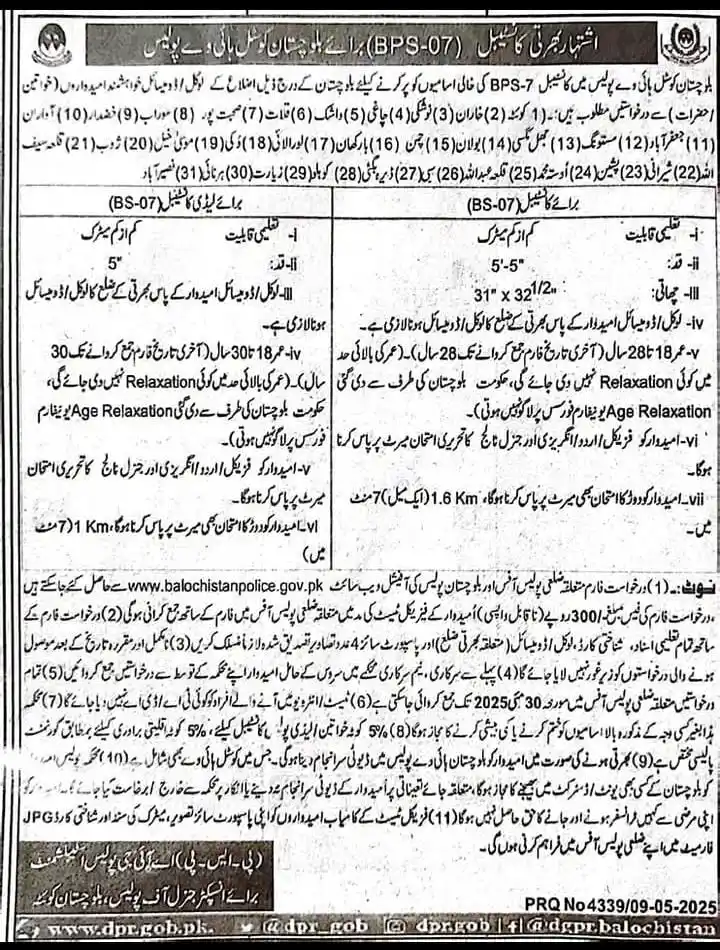 اشتہار بھرتی کانسٹیبل (BPS-07) برائے بلوچستان کوسٹل ہائی وے پولیس
بلوچستان کوسٹل ہائی وے پولیس میں کانسٹیبل BPS-7 کی خالی اسامیوں کو پر کرنے کیلئے بلوچستان کے درج ذیل اضلاع کے لوکل/ڈومیسائل خواہشمند امیدواروں (خواتین
/حضرات) سے درخواستیں مطلوب ہیں:۔ (1) کوئٹہ (2) خاران (3) نوشکی (4) چاغی (5) واشک (6) قلات (7) صحبت پور (8) سوراب (9) خضدار (10) آواران
(11) جعفرآباد (12) مستونگ (13) جھل مگسی (14) بولان (15) چمن (16) بارکھان (17) لورالائی (18) دکی (19) موسیٰ خیل (20) ژوب (21) قلعہ سیف
اللہ (22) شیرانی (23) پشین (24) اوستہ محمد (25) قلعہ عبداللہ (26) سبی (27) ڈیرہ بگٹی (28) کوہلو (29) زیارت (30) ہرنائی (31) نصیرآباد
برائے کانسٹیبل (BS-07)
i- تعلیمی قابلیت کم از کم میٹرک
ii- قد: 5'-5"
iii- چھاتی: 31" x 32 1/2"
iv- لوکل/ڈومیسائل امیدوار کے پاس بھرتی کے ضلع کا لوکل/ڈومیسائل ہونا لازی ہے۔
v- عمر 18 تا 28 سال (آخری تاریخ فارم جمع کروانے تک 28 سال)۔ (عمر کی بالائی حد
میں کوئی Relaxation نہیں دی جائے گی، حکومت بلوچستان کی طرف سے دی گئی
Age Relaxation یونیفارم فورسس پر لاگو نہیں ہوتی)۔
vi- امیدوار کو فزیکل/اردو/انگریزی اور جنرل نالج کا تحریری امتحان میرٹ پر پاس کرنا
ہوگا۔
vii- امیدوار کو دوڑ کا امتحان بھی میرٹ پر پاس کرنا ہوگا، 1.6 Km (ایک میل) 7 منٹ
میں۔
برائے لیڈی کانسٹیبل (BS-07)
i- تعلیمی قابلیت کم از کم میٹرک
ii- قد: 5"
iii- لوکل/ڈومیسائل امیدوار کے پاس بھرتی کے ضلع کا لوکل/ڈومیسائل
ہونا لازی ہے۔
iv- عمر 18 تا 30 سال (آخری تاریخ فارم جمع کروانے تک 30
سال)۔ (عمر کی بالائی حد میں کوئی Relaxation نہیں دی جائے گی،
حکومت بلوچستان کی طرف سے دی گئی Age Relaxation یونیفارم
فورسس پر لاگو نہیں ہوتی)۔
v- امیدوار کو فزیکل/اردو/انگریزی اور جنرل نالج کا تحریری امتحان
میرٹ پر پاس کرنا ہوگا۔
vi- امیدوار کو دوڑ کا امتحان بھی میرٹ پر پاس کرنا ہوگا، 1 Km (7 منٹ
میں)
نوٹ:۔ (1) درخواست فارم متعلقہ ضلعی پولیس آفس اور بلوچستان پولیس کی آفیشل ویب سائٹ www.balochistanpolice.gov.pk سے حاصل کئے جاسکتے ہیں
، درخواست فارم کی فیس مبلغ -/300 روپے (ناقابل واپسی) اُمیدوار کے فیزیکل ٹیسٹ کی مد میں متعلقہ ضلعی پولیس آفس میں فارم کے ساتھ جمع کرانی ہوگی (2) درخواست فارم کے
ساتھ تمام تعلیمی اسناد، شناختی کارڈ، لوکل/ڈومیسائل (متعلقہ بھرتی ضلع) اور پاسپورٹ سائز 4 عدد تصاویر تصدیق شدہ لازماً منسلک کریں (3) نامکمل اور مقررہ تاریخ کے بعد موصول
ہونے والی درخواستوں کو زیر غور نہیں لایا جائے گا (4) پہلے سے سرکاری، نیم سرکاری محکمے میں سروس کے حامل امیدوار اپنے محکمہ کے توسط سے درخواستیں جمع کروائیں (5) تمام
درخواستیں متعلقہ ضلعی پولیس آفس میں مورخہ 30 مئی 2025 تک جمع کروائی جاسکتی ہے (6) ٹیسٹ/انٹرویو میں آنے والے افراد کو کوئی ٹی اے/ڈی اے نہیں دیا جائے گا (7) محکمہ
ہذا بغیر کسی وجہ کے مذکورہ بالا اسامیوں کو ختم کرنے یا کمی بیشی کرنے کا مجاز ہوگا (8) 5% کوٹہ خواتین/لیڈی پولیس کانسٹیبل کیلئے، 5% کوٹہ اقلیتی برادری کیلئے بمطابق گورنمنٹ
پالیسی مختص ہے (9) بھرتی ہونے کی صورت میں امیدوار کو بلوچستان ہائی وے پولیس میں ڈیوٹی سرانجام دینا ہوگی۔ جس میں کوسٹل ہائی وے بھی شامل ہے (10) محکمہ پولیس
کو بلوچستان کے کسی بھی یونٹ/ڈسٹرکٹ میں بھیجنے کا مجاز ہوگا، متعلقہ جائے تعیناتی پر امیدوار کے ڈیوٹی سرانجام نہ دینے یا انکار پر محکمہ سے خارج/برخاست کیا جائے گا۔ کو
اپنی مرضی سے کہیں ٹرانسفر ہونے اور جانے کا حق حاصل نہیں ہوگا (11) فزیکل ٹیسٹ کے کامیاب امیدواروں کو اپنی پاسپورٹ سائز تصویر، میٹرک کی سند اور شناختی کارڈ JPG
فارمیٹ میں اپنے ضلعی پولیس آفس میں فراہم کرنی ہوں گی۔
(پی۔ایس۔پی) اے آئی جی پولیس اسٹیبلشمنٹ
برائے انسپکٹر جنرل آف پولیس، بلوچستان کوئٹہ
PRQ No 4339/09-05-2025
www.dpr.gob.pk. @dpr_gob dpr.gob @dgpr.balochistan